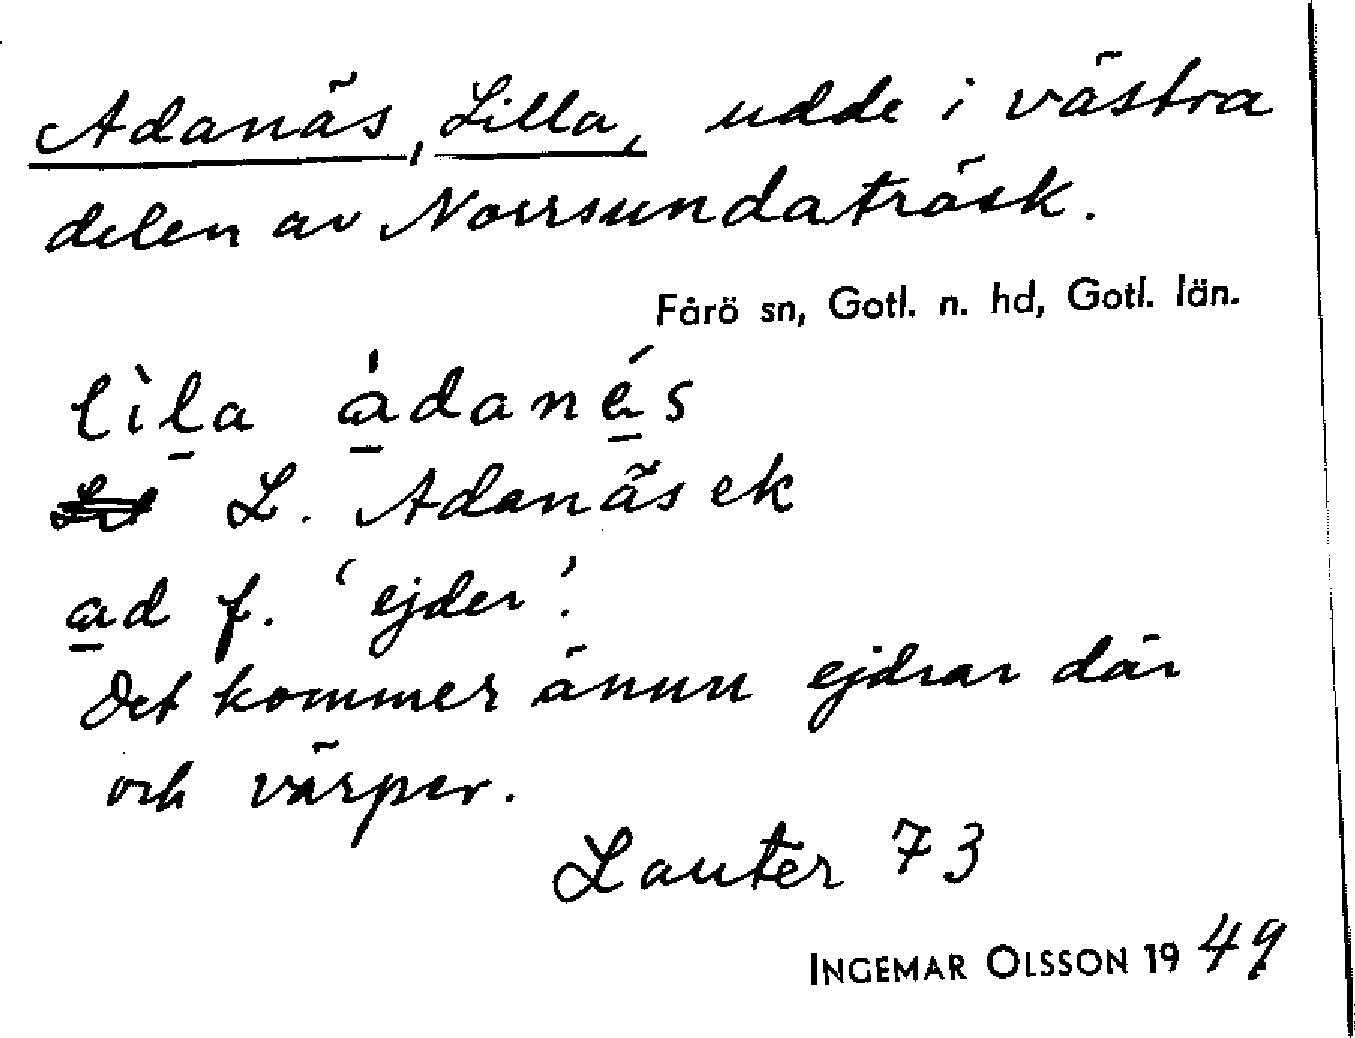 Adanäs, Lilla, udde i västra
delen av Norrsundaträsk.
Fårö sn, Gotl. n. hd, Gotl. län.
lìla àdanés
L. Adanäs ek
ad f. ‘ejder’.
Det kommer ännu ejdrar där
och värper.
Lauter 73
INGEMAR OLSSON 1949